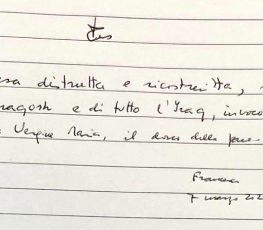 distrutta e ricostruita,
e di tutto l'Iraq, invoco
Vergine Maria, il dono della pace.
7 marzo 202